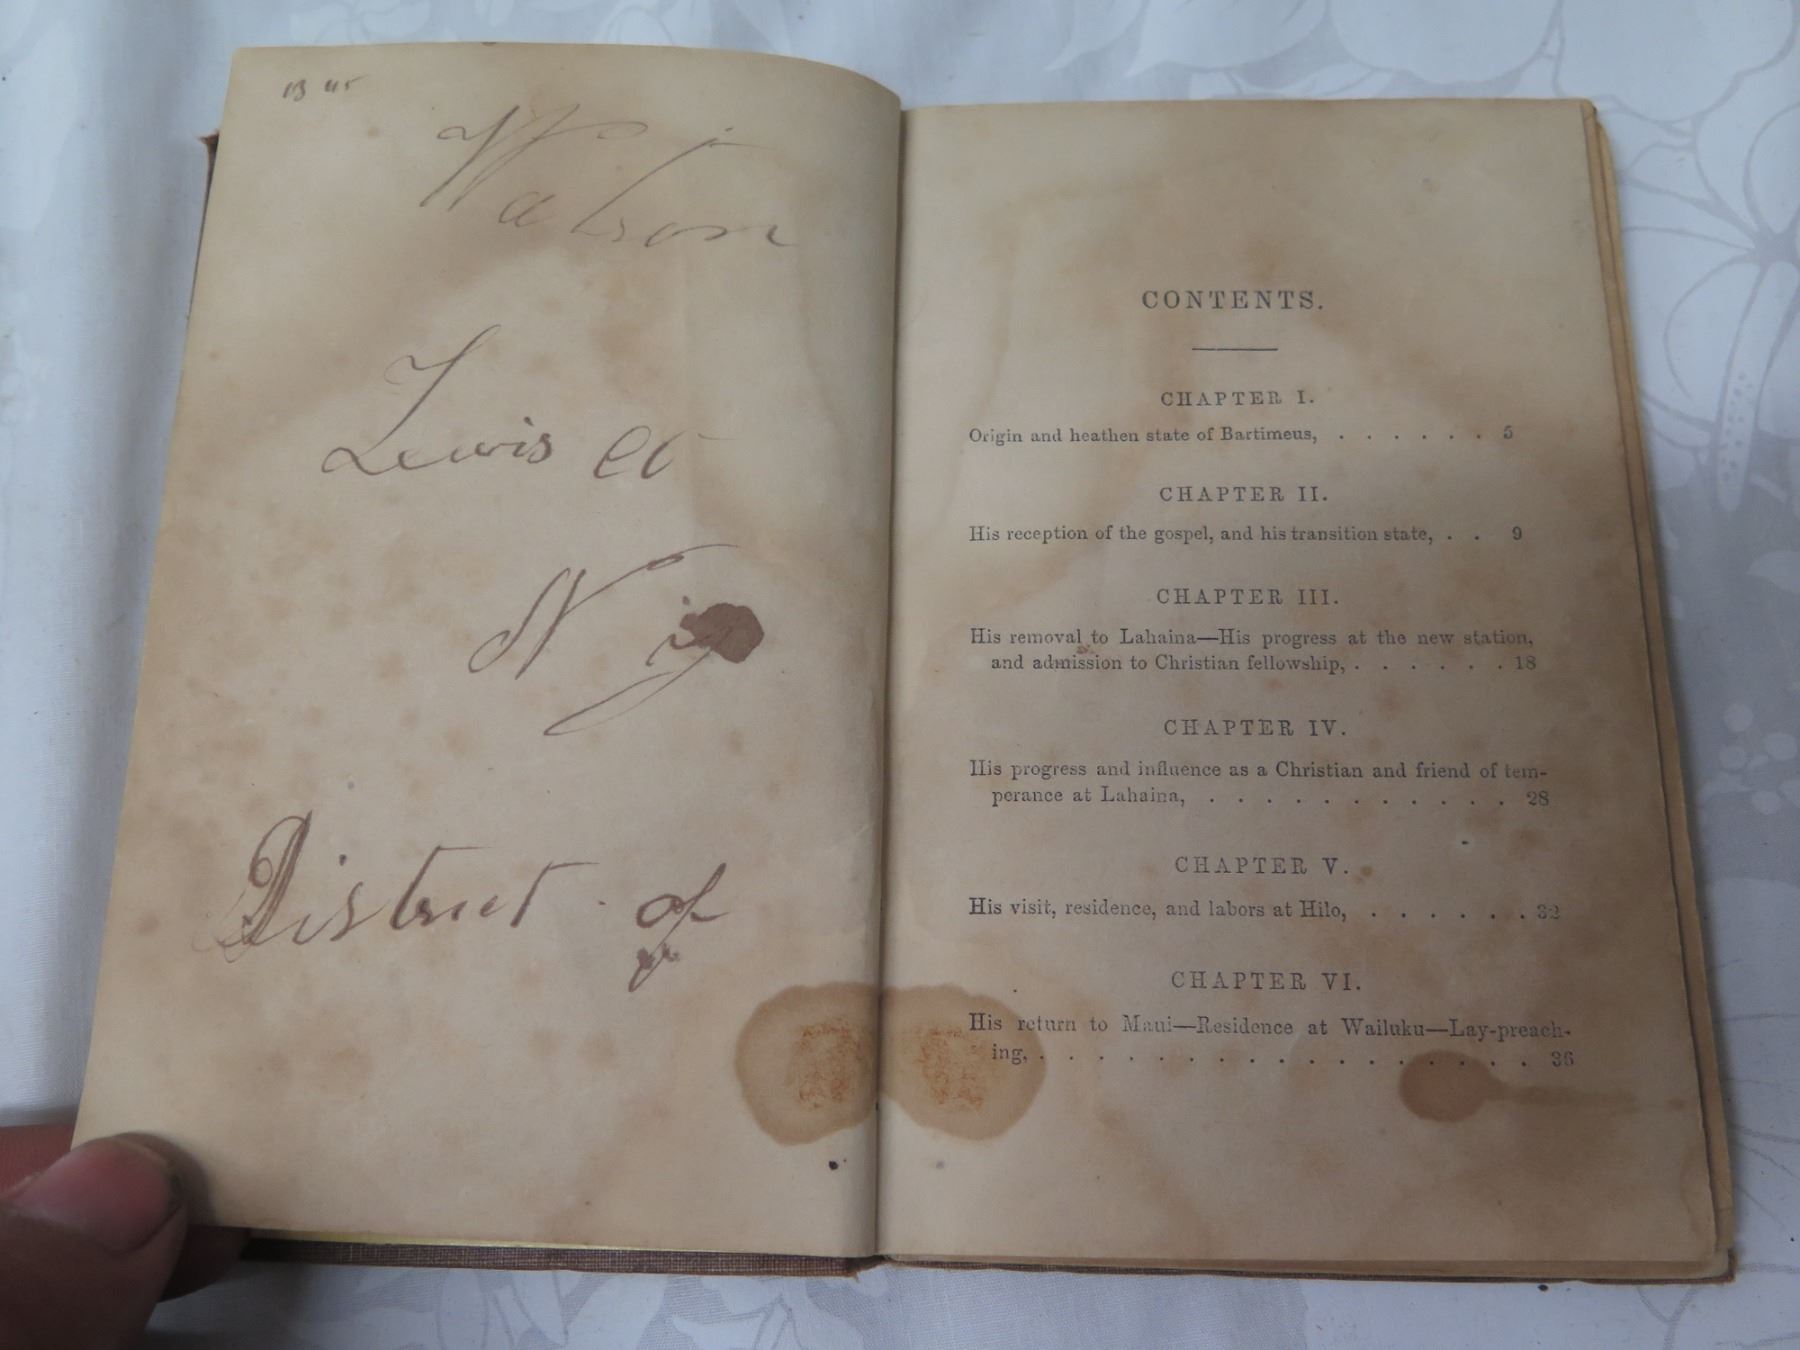 Watson
Lewis Co
N y
District of
CONTENTS.
CHAPTER I.
Origin and heathen state of Bartimeus, . . . . . . 5
CHAPTER II.
His reception of the gospel, and his transition state, . . 9
CHAPTER III.
His removal to Lahaina—His progress at the new station,
and admission to Christian fellowship, . . . . . . 18
CHAPTER IV.
His progress and influence as a Christian and friend of tem-
perance at Lahaina, . . . . . . . . . . . 28
CHAPTER V.
His visit, residence, and labors at Hilo, . . . . . . 32
CHAPTER VI.
His return to Maui—Residence at Wailuku—Lay-preach-
ing, . . . . . . . . . . . . . . . . . . 36